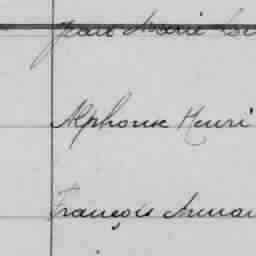 Jean Marie
Alphonse Henri
François